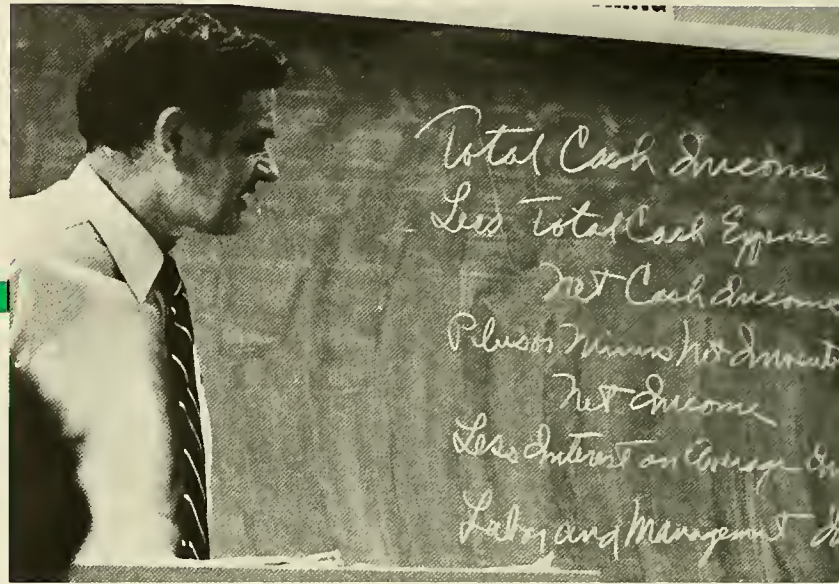 Total Cash Income
Less Total Cash Expense
Net Cash Income
Plus or Minus Net
Net Income
Less Interest on Average
Labor and Management